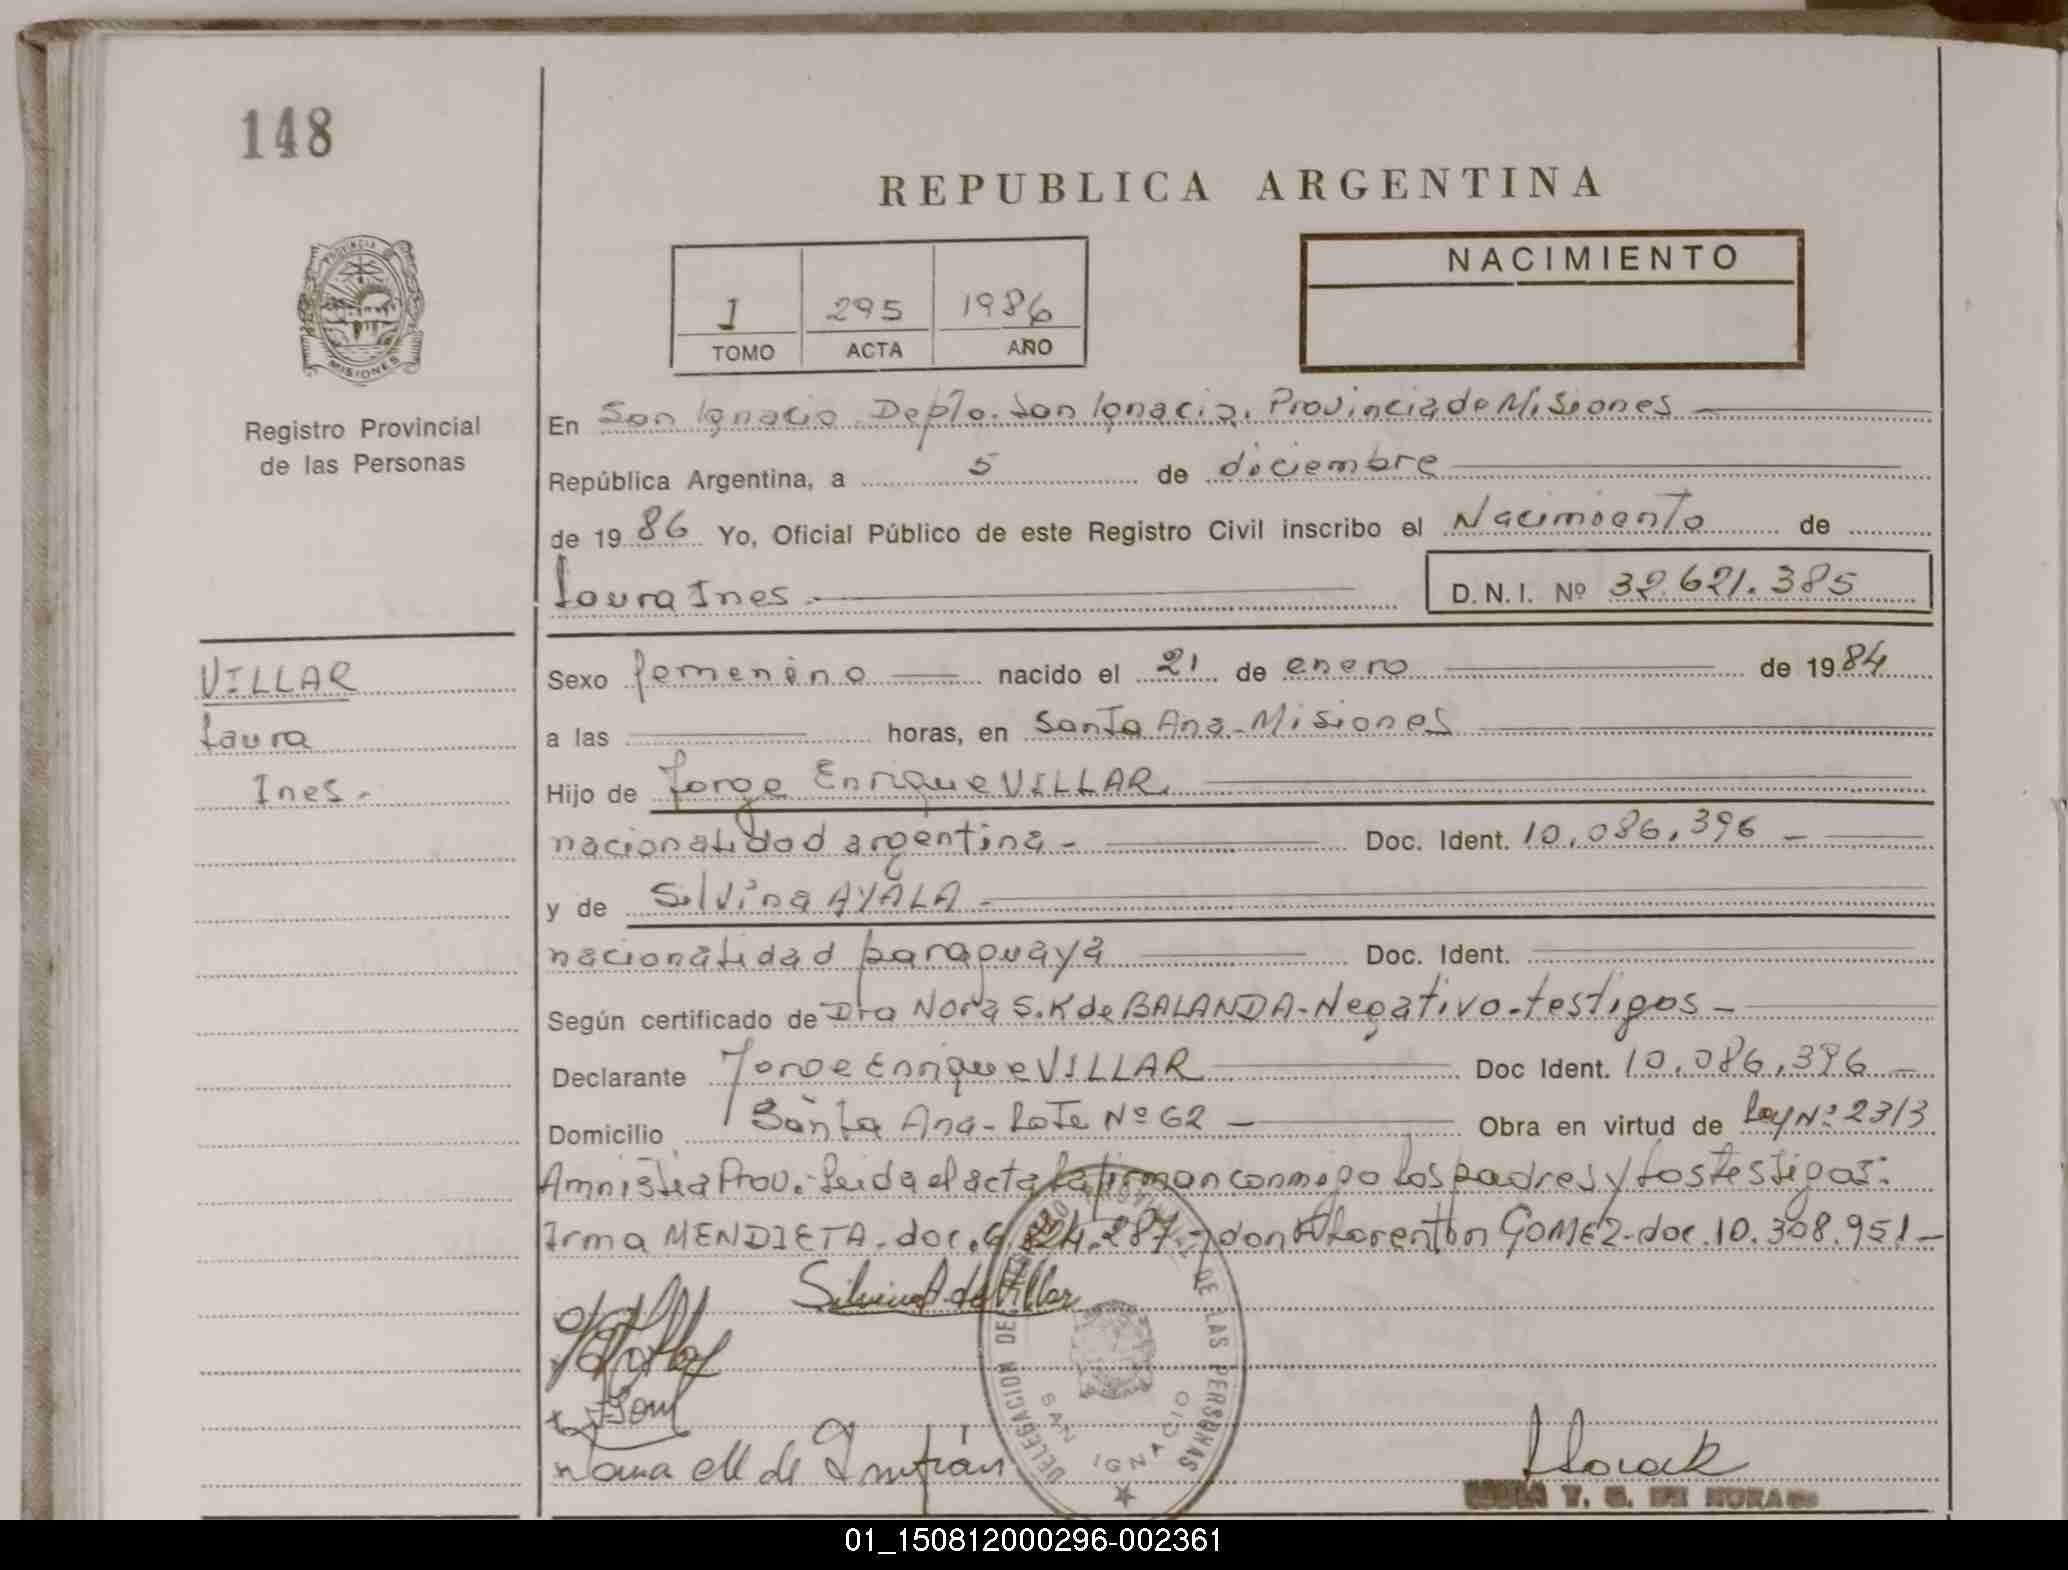 148
REPUBLICA ARGENTINA
NACIMIENTO
1 295 1986
TOMO ACTA AÑO
PROVINCIA
MISIONES
Registro Provincial
de las Personas
En San Ignacio Depto. San Ignacio. Provincia de Misiones
República Argentina, a 5 de diciembre
de 19 86 Yo, Oficial Público de este Registro Civil inscribo el Nacimiento de
Laura Ines
D. N. I. Nº 32.621.385
VILLAR
Laura
Ines.-
Sexo femenino nacido el 21 de enero de 19 84
a las horas, en Santa Ana - Misiones
Hijo de Jorge Enrique VILLAR
nacionalidad argentina.- Doc. Ident. 10.086.396 -
y de Silvina AYALA -
nacionalidad paraguaya Doc. Ident.
Según certificado de Dra Nora S. K de BALANDA - Negativo - testigos -
Declarante Jorge Enrique VILLAR Doc Ident. 10.086.396 -
Domicilio Santa Ana - Lote Nº 62 - Obra en virtud de Ley Nº 2313
Amnistia Prov. - Leida el acta la firman conmigo los padres y los testigos:
Irma MENDIETA - doc. 287 - GOMEZ - doc. 10.308.951 -
Silvina A. de Villar
DELEGACION DE LAS PERSONAS
SAN IGNACIO
01_150812000296-002361